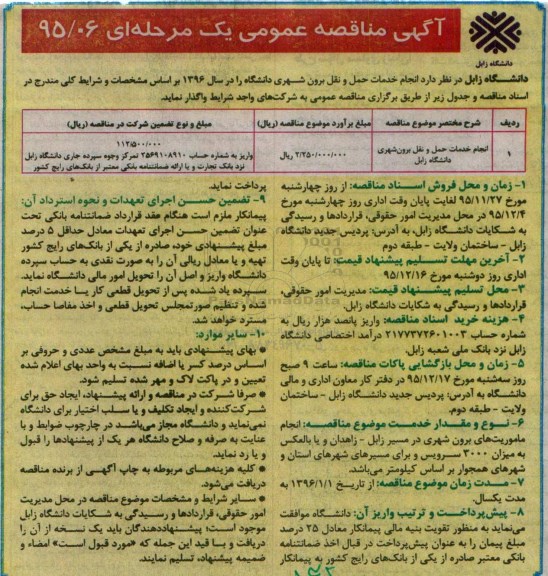 آگهی مناقصه عمومی یک مرحله‌ای ۹۵/۰۶
دانشگاه زابل
دانشـــگاه زابل در نظر دارد انجام خدمات حمل و نقل برون شــهری دانشگاه را در سال ۱۳۹۶ بر اساس مشخصات و شرایط کلی مندرج در
اسناد مناقصه و جدول زیر از طریق برگزاری مناقصه عمومی به شرکت‌های واجد شرایط واگذار نماید.
ردیف
شرح مختصر موضوع مناقصه
مبلغ برآورد موضوع مناقصه (ریال)
مبلغ و نوع تضمین شرکت در مناقصه (ریال)
۱
انجام خدمات حمل و نقل برون‌شهری
دانشگاه زابل
۲/۲۵۰/۰۰۰/۰۰۰ ریال
۱۱۲/۵۰۰/۰۰۰
واریز به شماره حساب ۲۵۶۹۱۰۸۹۱۰ تمرکز وجوه سپرده جاری دانشگاه زابل
نزد بانک تجارت و یا ارائه ضمانتنامه بانکی معتبر از بانک‌های رایج کشور
۱- زمان و محل فروش اســناد مناقصه: از روز چهارشنبه
مورخ ۹۵/۱۱/۲۷ لغایت پایان وقت اداری روز چهارشنبه مورخ
۹۵/۱۲/۴ در محل مدیریت امور حقوقی، قراردادها و رسیدگی
به شکایات دانشگاه زابل، به آدرس: پردیس جدید دانشگاه
زابل - ساختمان ولایت - طبقه دوم
۲- آخرین مهلت تســلیم پیشنهاد قیمت: تا پایان وقت
اداری روز دوشنبه مورخ ۹۵/۱۲/۱۶
۳- محل تسلیم پیشــنهاد قیمت: مدیریت امور حقوقی،
قراردادها و رسیدگی به شکایات دانشگاه زابل.
۴- هزینه خرید اسناد مناقصه: واریز پانصد هزار ریال به
شماره حساب ۲۱۷۷۳۷۲۶۰۱۰۰۳ درآمد اختصاصی دانشگاه
زابل نزد بانک ملی شعبه زابل.
۵- زمان و محل بازگشایی پاکات مناقصه: ساعت ۹ صبح
روز سه‌شنبه مورخ ۹۵/۱۲/۱۷ در دفتر کار معاون اداری و مالی
دانشگاه به آدرس: پردیس جدید دانشگاه زابل - ساختمان
ولایت - طبقه دوم.
۶- نــوع و مقــدار خدمــت موضوع مناقصــه: انجام
ماموریت‌های برون شهری در مسیر زابل - زاهدان و یا بالعکس
به میزان ۳۰۰۰ سرویس و برای مسیرهای شهرهای استان و
شهرهای همجوار بر اساس کیلومتر می‌باشد.
۷- مــدت زمان موضوع مناقصه: از تاریخ ۱۳۹۶/۱/۱ به
مدت یکسال.
۸- پیش‌پرداخــت و ترتیب واریز آن: دانشگاه موافقت
می‌نماید به منظور تقویت بنیه مالی پیمانکار معادل ۲۵ درصد
مبلغ پیمان را به عنوان پیش‌پرداخت در قبال اخذ ضمانتنامه
بانکی معتبر صادره از یکی از بانک‌های رایج کشور به پیمانکار
پرداخت نماید.
۹- تضمین حســن اجرای تعهدات و نحوه استرداد آن:
پیمانکار ملزم است هنگام عقد قرارداد ضمانتنامه بانکی تحت
عنوان تضمین حسن اجرای تعهدات معادل حداقل ۵ درصد
مبلغ پیشنهادی خود، صادره از یکی از بانک‌های رایج کشور
تهیه و یا معادل ریالی آن را به صورت نقدی به حساب سپرده
دانشگاه واریز و اصل آن را تحویل امور مالی دانشگاه نماید.
ســپرده یاد شــده پس از تحویل قطعی کار یــا خدمت انجام
شده و تنظیم صورتمجلس تحویل قطعی و اخذ مفاصا حساب،
مسترد خواهد شد.
۱۰- سایر موارد:
● بهای پیشــنهادی باید به مبلغ مشخص عددی و حروفی بر
اساس درصد کسر یا اضافه نسبت به واحد بهای اعلام شده
تعیین و در پاکت لاک و مهر شده تسلیم شود.
● صرفا شرکت در مناقصه و ارائه پیشنهاد، ایجاد حق برای
شرکت‌کننده و ایجاد تکلیف و یا سلب اختیار برای دانشگاه
نمی‌نماید و دانشگاه مجاز می‌باشد در چارچوب ضوابط و با
عنایت به صرفه و صلاح دانشگاه هر یک از پیشنهادها را قبول
و یا رد نماید.
● کلیه هزینه‌هــای مربوطه به چاپ آگهــی از برنده مناقصه
دریافت می‌شود.
● ســایر شرایط و مشخصات موضوع مناقصه در محل مدیریت
امور حقوقی، قراردادها و رســیدگی به شکایات دانشگاه زابل
موجود است؛ پیشنهاددهندگان باید یک نسخه از آن را
دریافت و بــا قید این جمله که «مورد قبول است» امضاء و
ضمیمه پیشنهاد، تسلیم نمایند.